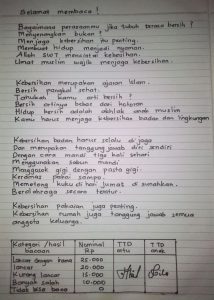 Selamat membaca !
Bagaimana perasaanmu jika tubuh terasa bersih ?
Menyenangkan bukan ?
Menjaga kebersihan itu penting.
Membuat Hidup menjadi nyaman.
Allah SWT mencintai kebersihan.
Umat muslim wajib menjaga kebersihan.
Kebersihan merupakan ajaran Islam.
Bersih pangkal sehat.
Tahukah kamu arti bersih ?
Bersih artinya bebas dari kotoran
Hidup bersih adalah akhlak anak muslim
Kamu harus menjaga kebersihan badan dan lingkungan
Kebersihan badan harus selalu di jaga
Dan merupakan tanggung jawab diri sendiri
Dengan cara mandi tiga kali sehari
Menggunakan sabun mandi
Menggosok gigi dengan pasta gigi.
Keramas pakai sampo
Memotong kuku di hari Jumat di sunahkan.
Berolahraga secara teratur.
Kebersihan pakaian juga penting.
Kebersihan rumah juga tanggung jawab semua
anggota keluarga.
Kategori /hasil bacaan Nominal Rp TTD TTD anak
Lancar 25.000
lancar 20.000
Kurang lancar 15.000
Banyak salah 10.000
Tidak bisa baca 0